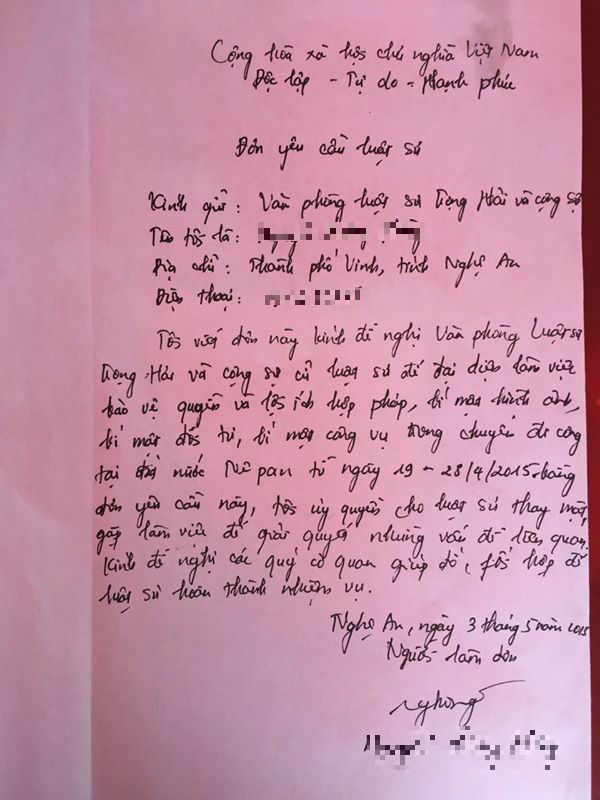 Cộng hoà xã hội chủ nghĩa Việt Nam
Độc lập - Tự do - Hạnh phúc
Đơn yêu cầu luật sư
Kính gửi: Văn phòng luật sư Trọng Hải và cộng sự
Tên tôi là:
Địa chỉ: Thành phố Vinh, tỉnh Nghệ An
Điện thoại:
Tôi viết đơn này kính đề nghị Văn phòng Luật sư
Trọng Hải và cộng sự cử luật sư để đại diện làm việc
bảo vệ quyền và lợi ích hợp pháp, bí mật hình ảnh,
bí mật đời tư, bí mật công vụ trong chuyến đi công
tại đất nước Nê pan từ ngày 19 - 28/4/2015. bằng
đơn yêu cầu này, tôi ủy quyền cho luật sư thay mặt,
gặp làm việc để giải quyết những vấn đề liên quan.
Kính đề nghị các quý cơ quan giúp đỡ, phối hợp để
luật sư hoàn thành nhiệm vụ.
Nghệ An, ngày 3 tháng 5 năm 2015
Người làm đơn